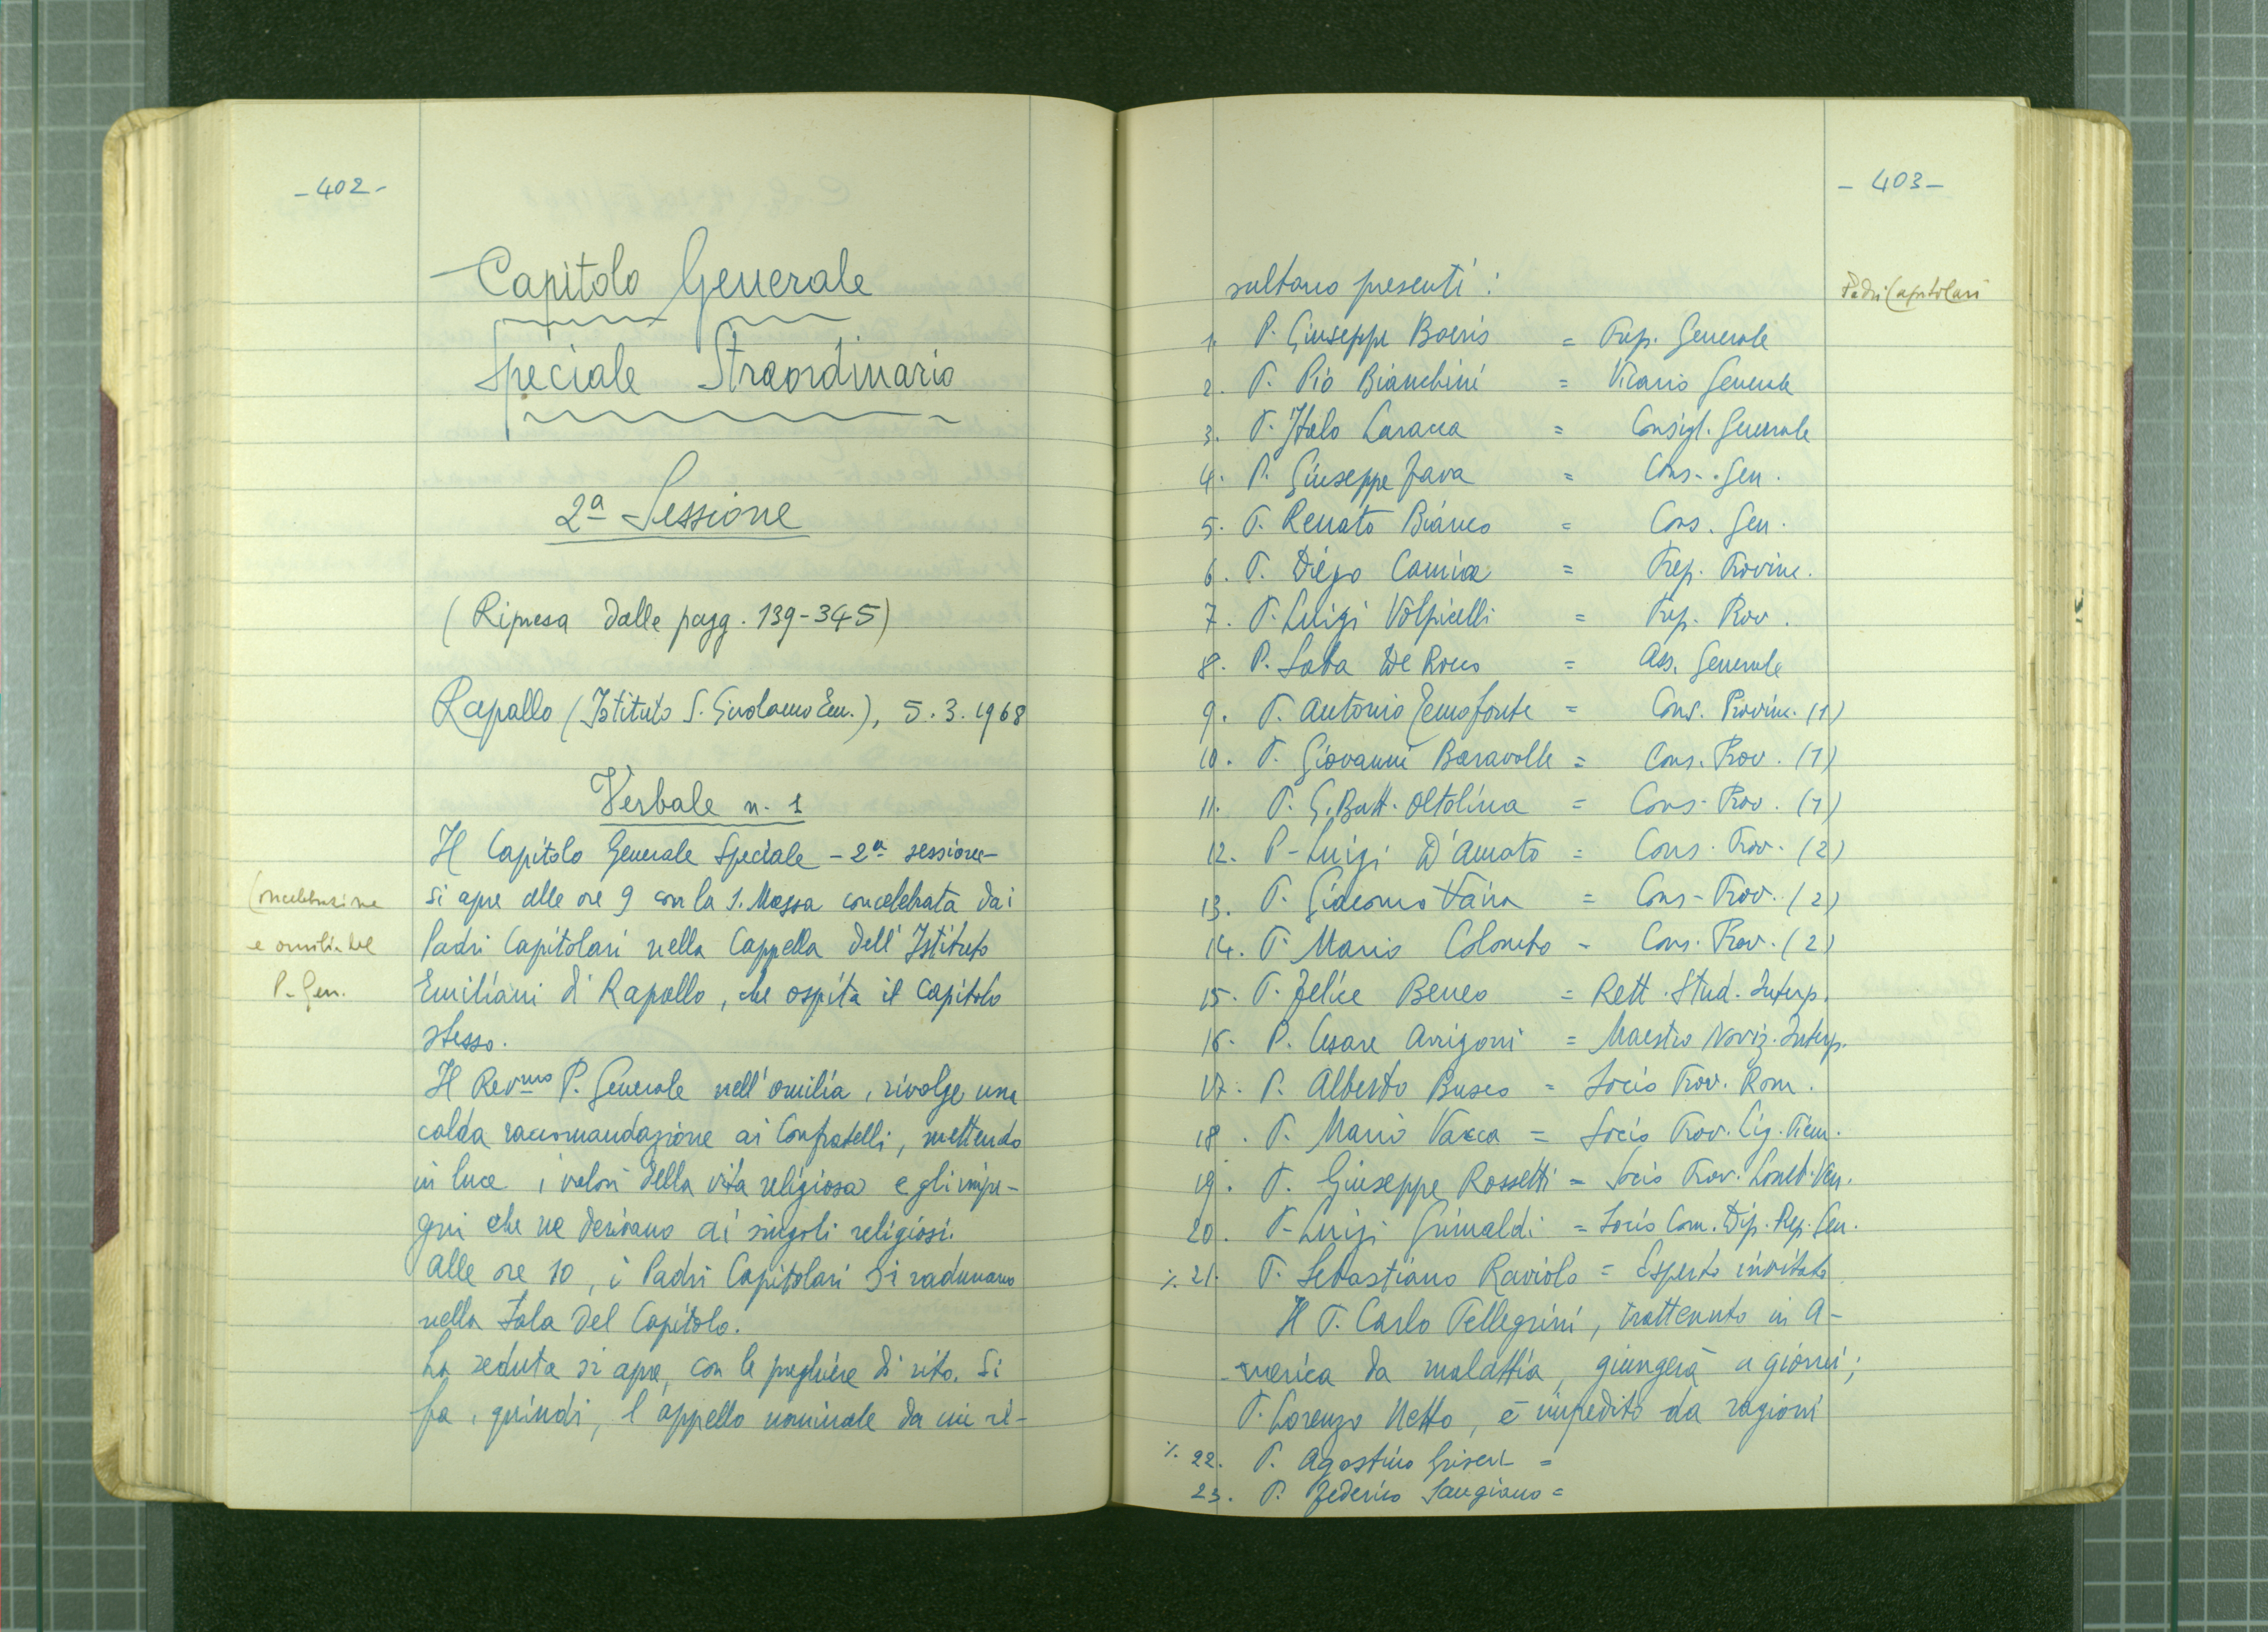 -402-
Capitolo Generale
Speciale Straordinario
2ª Sessione
(Ripresa dalle pagg. 139-345)
Rapallo (Istituto S. Girolamo Em.), 5.3.1968
Verbale n. 1
Il Capitolo Generale Speciale - 2ª sessione -
si apre alle ore 9 con la S. Messa concelebrata dai
Padri Capitolari nella Cappella dell'Istituto
Emiliani di Rapallo, che ospita il Capitolo
stesso.
Il Rev.mo P. Generale nell'omilia, rivolge una
calda raccomandazione ai Confratelli, mettendo
in luce i valori della vita religiosa e gli impe-
gni che ne derivano ai singoli religiosi.
Alle ore 10, i Padri Capitolari si radunano
nella Sala del Capitolo.
La seduta si apre, con le preghiere di rito. Si
fa, quindi, l'appello nominale da cui ri-
Concelebrazione
e omilia del
P. Gen.
- 403 -
Padri Capitolari
sultano presenti:
1. P. Giuseppe Boeris = Prep. Generale
2. P. Pio Bianchini = Vicario Generale
3. P. Italo Laracca = Consigl. Generale
4. P. Giuseppe Fava = Cons. Gen.
5. P. Renato Bianco = Cons. Gen.
6. P. Diego Camia = Prep. Provinc.
7. P. Luigi Volpicelli = Prep. Prov.
8. P. Saba De Rocco = Ass. Generale
9. P. Antonio Temofonte = Cons. Provinc. (1)
10. P. Giovanni Baravalle = Cons. Prov. (1)
11. P. G. Batt. Oltolina = Cons. Prov. (1)
12. P. Luigi D'Amato = Cons. Prov. (2)
13. P. Giacomo Vaira = Cons. Prov. (2)
14. P. Mario Colombo = Cons. Prov. (2)
15. P. Felice Beneo = Rett. Stud. Interp.
16. P. Cesare Arrigoni = Maestro Noviz. Interp.
17. P. Alberto Busco = Socio Prov. Rom.
18. P. Mario Vacca = Socio Prov. Lig. Piem.
19. P. Giuseppe Rossetti = Socio Prov. Lomb. Ven.
20. P. Luigi Grimaldi = Socio Com. Dip. Prep. Gen.
%. 21. P. Sebastiano Raviolo = Esperto invitato
Il P. Carlo Pellegrini, trattenuto in A-
merica da malattia, giungerà a giorni;
P. Lorenzo Netto, è impedito da ragioni
%. 22. P. Agostino Griseri =
23. P. Federico Sangiano =